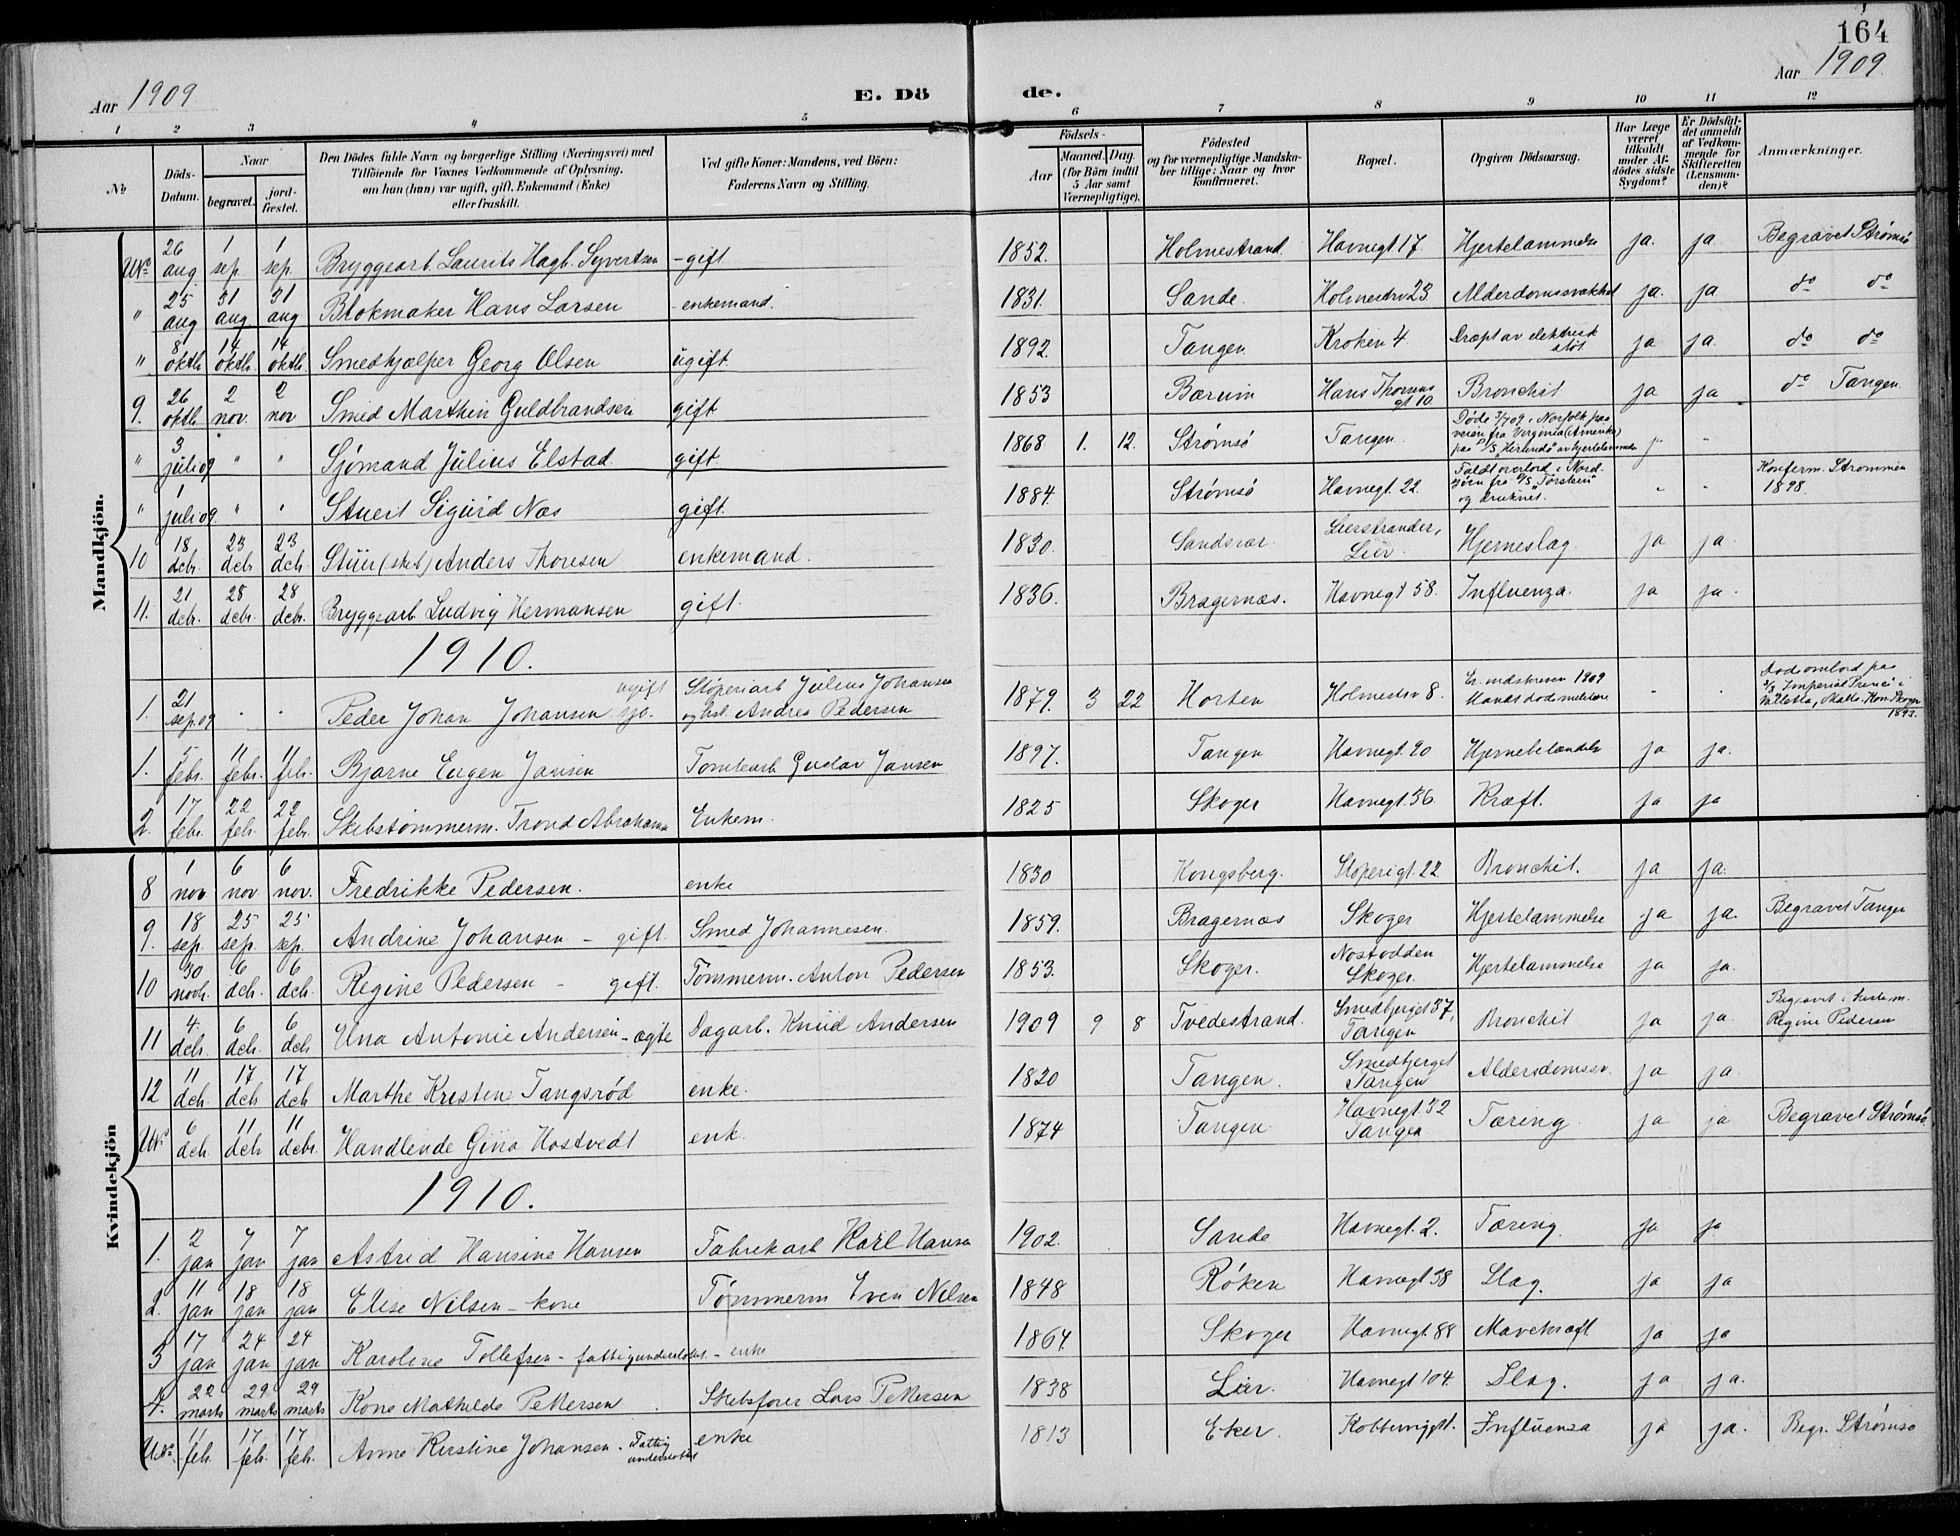 164
Aar 1909
E. Dö de.
Aar 1909.
1 2 3 4 5 6 7 8 9 10 11 12
No
Döds-Datum.
Naar
begravet.
jordfæstet.
Den Dödes fulde Navn og borgerlige Stilling (Næringsvei) med
Tilföiende for Voxnes Vedkommende af Oplysning.
om han (hun) var ugift, gift, Enkemand (Enke)
eller fraskilt.
Ved gifte Koner: Mandens, ved Börn:
Faderens Navn og Stilling.
Födsels-
Aar
Maaned. Dag.
(for Börn indtil
5 Aar samt
Værnepligtige).
Födested
og for værnepligtige Mandska-
ber tillige: Naar og hvor
konfirmeret.
Bopæl.
Opgiven Dödsaarsag.
Har Læge
været
tilkaldt
under Af-
dödes sidste
Sygdom?
Er Dödsfal-
det anmeldt
af Vedkom-
mende for
Skifteretten
(Lensman-
den)?
Anmærkninger.
Mandkjön.
UNo 26 aug 1 sep. 1 sep. Bryggearb. Laurits Hagb. Syvertsen - gift 1852. Holmestrand. Havnegt 17 Hjertelammelse ja. ja Begravet Strømsö
" 25 aug 31 aug 31 aug Blokmaker Hans Larsen - enkemand. 1831. Sande. Holmestrv 23 Alderdomssvakhet ja. ja do do
" 8 oktb. 14 oktb. 14 oktb. Smedhjælper Georg Olsen ugift. 1892. Tangen Kroken 4 Dræpt av elektrisk støt ja ja. do do
9. 26 oktb. 2 nov. 2 nov Smed Marthin Guldbrandsen gift 1853 Bærum Hans Thorns gt 10 Bronchit ja ja. do Tangen.
" 3 juli 09 " " Sjømand Julius Elstad gift. 1868 1. 12. Strømsö Tangen. Døde 3/7 09 i Norfolk paa
veien fra Virginia (Amerika)
paa D/S "Herlend" av hjertelammelse
" 1 juli 09. " " Stuert Sigurd Næs gift. 1884. Strømsö Havnegt. 22. Faldt overbord i Nord-
sjøen fra D/S "Torstein"
og druknet. " " Konferm. Strømmen
1898.
10 18 decb. 23 decb 23 dcb. Stuer (skib) Anders Thoresen enkemand. 1830. Sandsvær. Lierstranden, Lier. Hjerneslag. ja ja.
11. 21 decb. 28 decb. 28 decb. Bryggearb Ludvig Hermansen gift. 1836. Bragernæs. Havnegt 58. Influenza. ja ja.
1910.
1. 21 sep. 09 " " Peder Johan Johansen ugift sjø. Støperiarb Julius Johansen
og hst. Andrea Pedersen 1879. 3 22 Horten Holmestrv 8. Er indskreven 1909 " " Død ombord paa
S/S Imperial Prince i
Valletta, Malta. Kon. Skoger
1893.
1. 5 febr. 11 febr. 11 feb. Bjarne Eugen Jansen Tomtearb Gustav Jansen 1897. Tangen Havnegt. 20 Hjernebetændelse ja ja.
2. 17 febr. 22 feb. 22 feb. Skibstømmerm. Trond Abrahamsen Enkem. 1825 Skoger Havnegt. 36 Kræft. ja ja
Kvindekjön
8 1 nov. 6 nov 6 nov. Fredrikke Pedersen. enke 1830 Kongsberg. Støperigt. 22 Bronchit. ja ja.
9. 18 sep. 25 sep. 25 sep. Andrine Johansen - gift. Smed Johannesen. 1859. Bragernæs Skoger Hjertelammelse ja ja. Begravet Tangen
10 30 novb. 6 dcb. 6 dcb. Regine Pedersen - gift. Tømmerm. Anton Pedersen 1853. Skoger. Nøstodden Skoger. Hjertelammelse ja ja.
11 4. dcb. 6 dcb. 6 dcb Una Antonie Andersen - ægte Dagarb. Knud Andersen 1909 9 8 Tvedestrand. Smedbjerget 37, Tangen Bronchit ja ja. Begravet i kiste m.
Regine Pedersen
12 11 dcb. 17 dcb 17 dcb Marthe Kristine Tangsrød enke. 1820 Tangen. Smedbjerget Tangen Alderdomssv. ja ja.
UNo 6 dcb. 11 dcb 11 dcbr. Handlende Gina Hostvedt enk. 1874 Tangen Havnegt 32 Tangen Tæring. ja ja Begravet Strømsö.
1910.
1. 2 jan 7 jan 7 jan Astrid Hansine Hansen Fabrikarb Karl Hansen 1902. Sande Havnegt. 2. Tæring. ja ja
2. 11 jan 18 jan 18 jan Elise Nilsen - kone Tømmerm Even Nilsen 1848 Røken Havnegt 38 Slag. ja ja
3 17 jan 24 jan 24 jan Karoline Tollefsen - fattigunderstøttet. - enke 1864. Skoger Havnegt. 88 Mavekræft ja ja
4. 22 marts 29 marts 29 marts Kone Mathilde Pettersen Skibsfører Lars Pettersen 1838 Lier. Havnegt 104. Slag. ja ja.
UNo. 11 feb. 17 feb. 17 feb. Anne Kirstine Johansen. Fattig understøttet enke 1813 Eker. Influenza ja ja. Begr. Strømsö